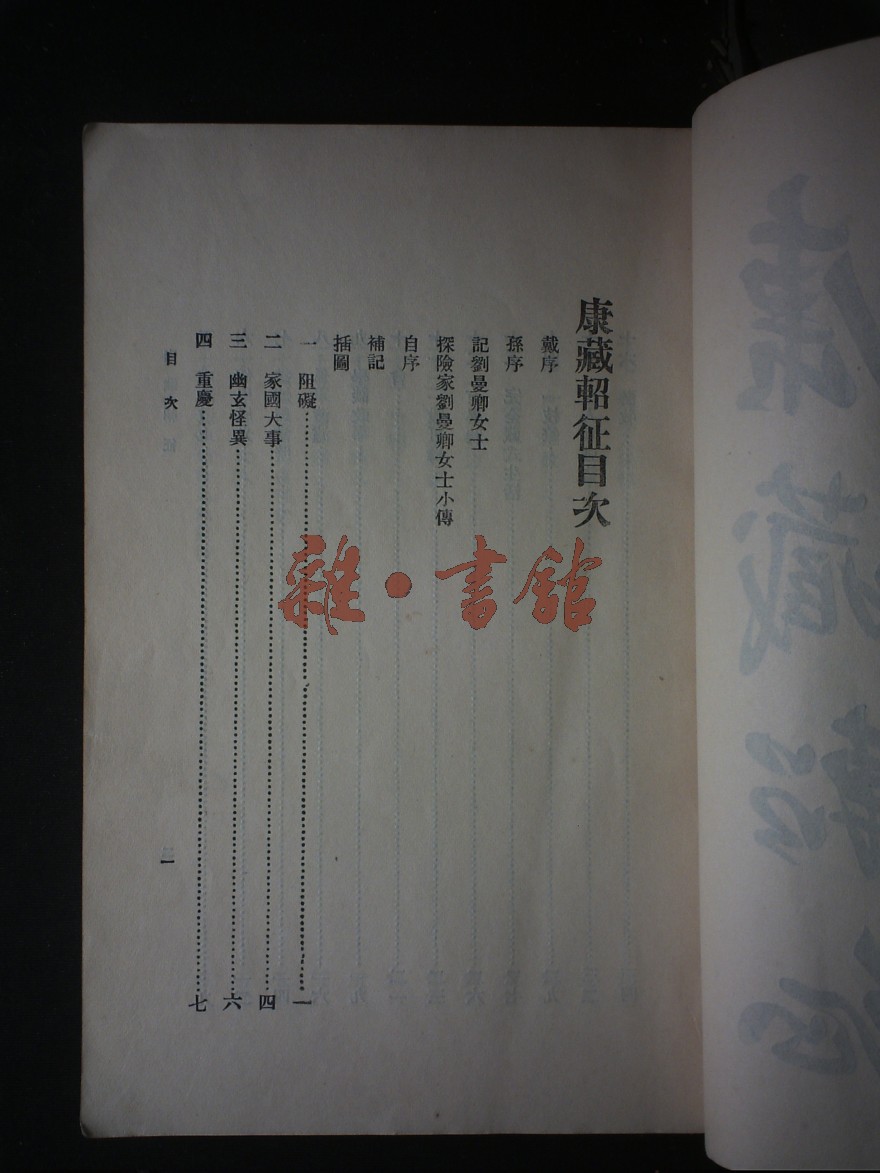 康藏軺征目次
戴序
孫序
記劉曼卿女士
探險家劉曼卿女士小傳
自序
補記
插圖
一 阻礙……一
二 家國大事……四
三 幽玄怪異……六
四 重慶……七
目次
一
雜·書館